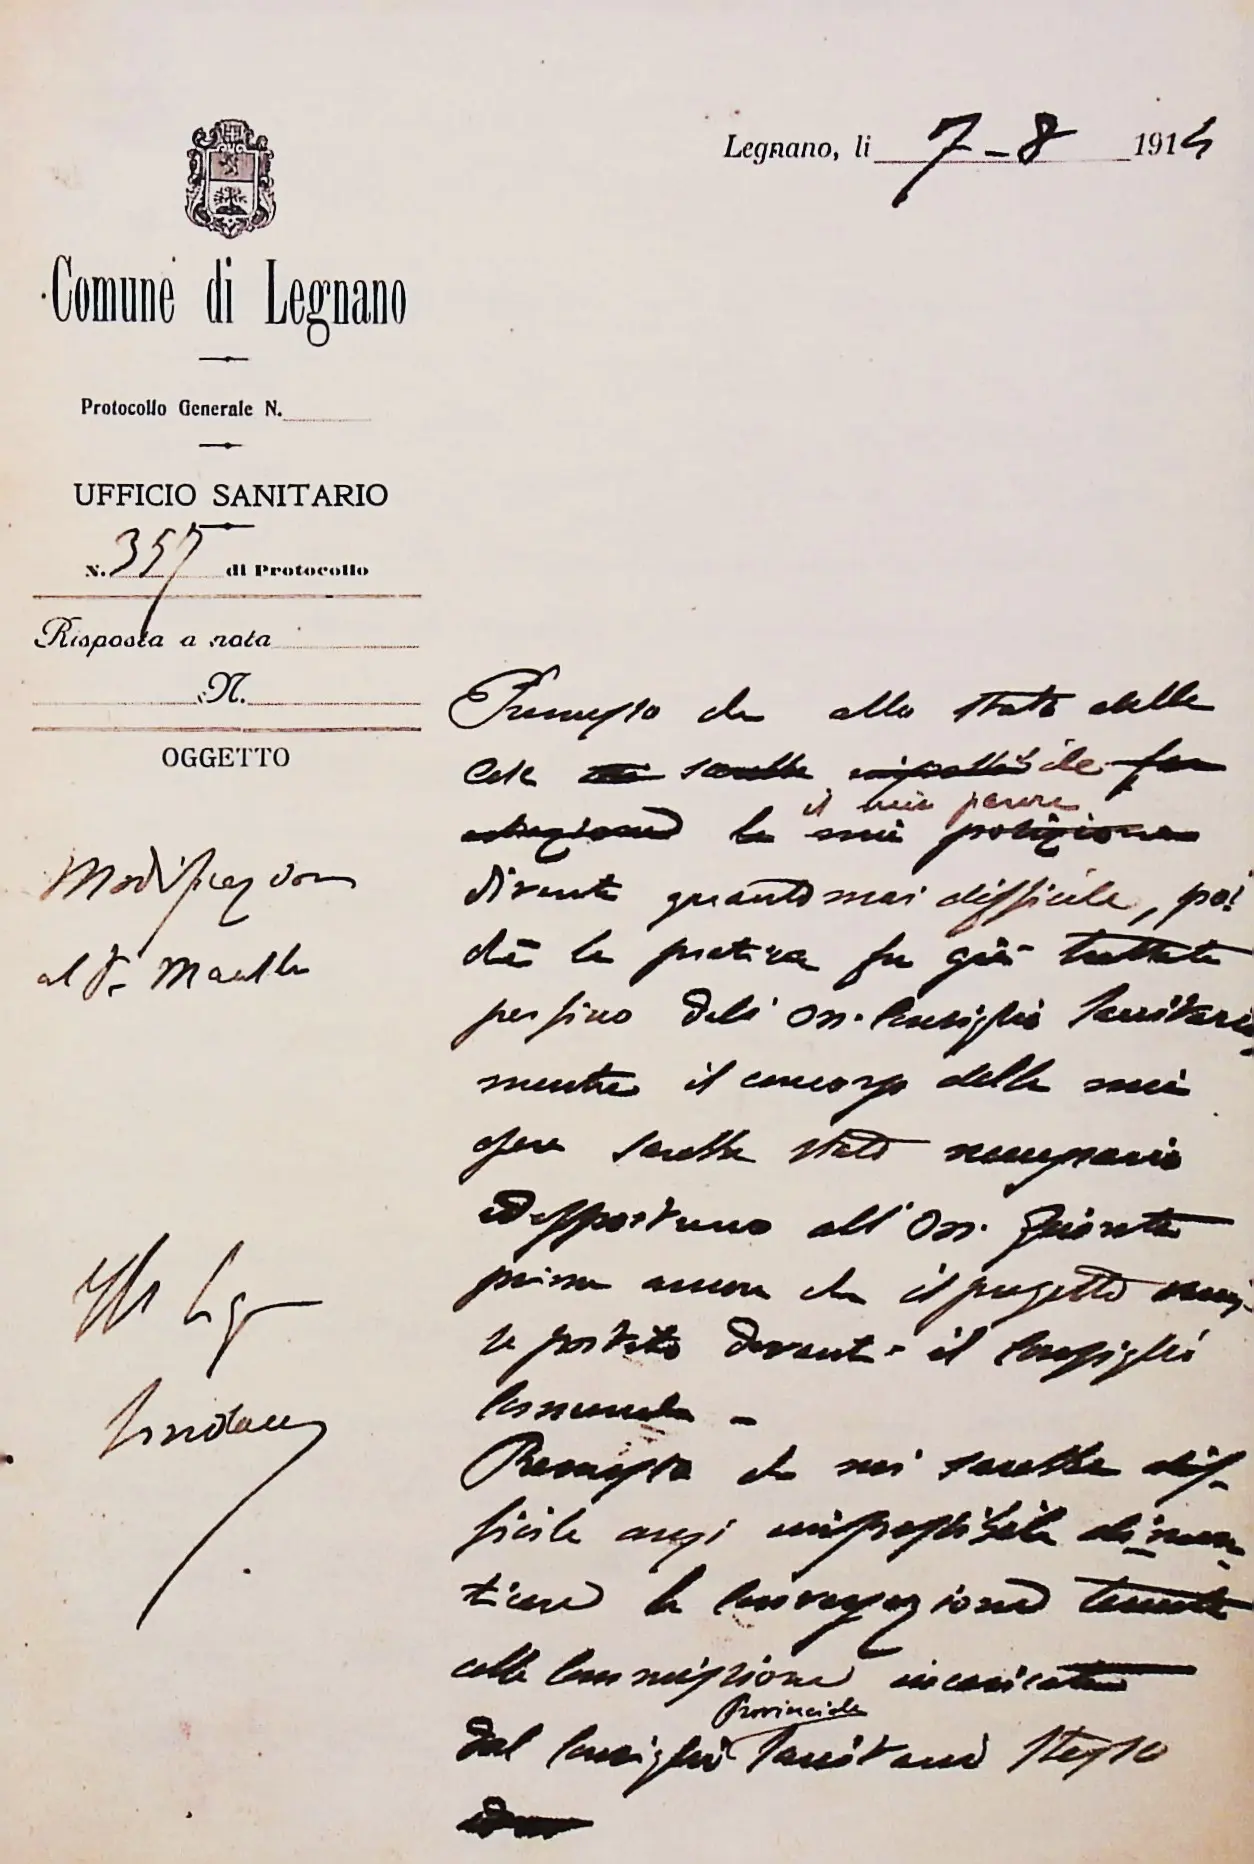 Legnano, li 7-8 1914
Comune di Legnano
Protocollo Generale N.
UFFICIO SANITARIO
N. 357 di Protocollo
Risposta a nota
N.
OGGETTO
Modificazioni
al
Ill. Sig.
Sindaco
Premesso che allo stato delle
cose sarebbe impossibile
il mio parere
la mia posizione
diventa quanto mai difficile, poi
chè la pratica fu già trattata
persino dall' On. Consiglio Sanitario
mentre il concorso della mia
opera sarebbe stato necessario
ed opportuno all' On. Giunta
prima ancora che il progetto venis-
se portato davanti il Consiglio
Comunale -
Premesso che mi sarebbe dif-
ficile anzi impossibile dimen-
ticare la conversazione tenuta
colla Commissione incaricata
Provinciale
dal Consiglio Sanitario stesso